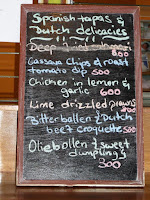 Spanish tapas &
Dutch delicacies
Deep
Cassava chips & roast
tomato dip 500
Chicken in lemon &
garlic 600
Lime drizzled prawns
800
Bitterballen & Dutch
beef croquettes 500
Oliebollen & sweet
dumplings &
300